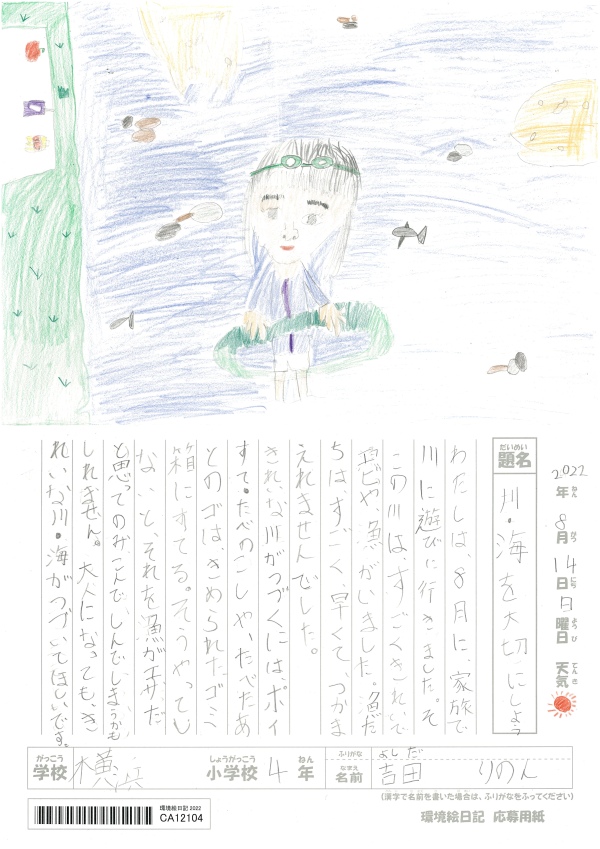 2022年8月14日日曜日 天気
ねん がつ にち ようび てんき
だいめい
題名 川・海を大切にしよう
わたしは、8月に、家族で
川に遊びに行きました。そ
この川は、すごくきれいで
エビや、漁がいました。漁だ
ちはすごく、早くて、つかま
えれませんでした。
きれいな川がつづくには、ポイ
すて・たべのこしや、たべたあ
とのゴは、きめられたゴミ
箱にすてる。そうやってし
ないと、それを漁がエサだ
と思ってのみこんで、しんでしまうかも
しれません。大人になっても、き
れいな川・海がつづいてほしいです。
がっこう しょうがっこう ねん
学校 横浜 小学校 4年
ふりがな よしだ
なまえ
名前 吉田 りのん
(漢字で名前を書いた場合は、ふりがなをふってください)
環境絵日記 2022
CA12104
環境絵日記 応募用紙